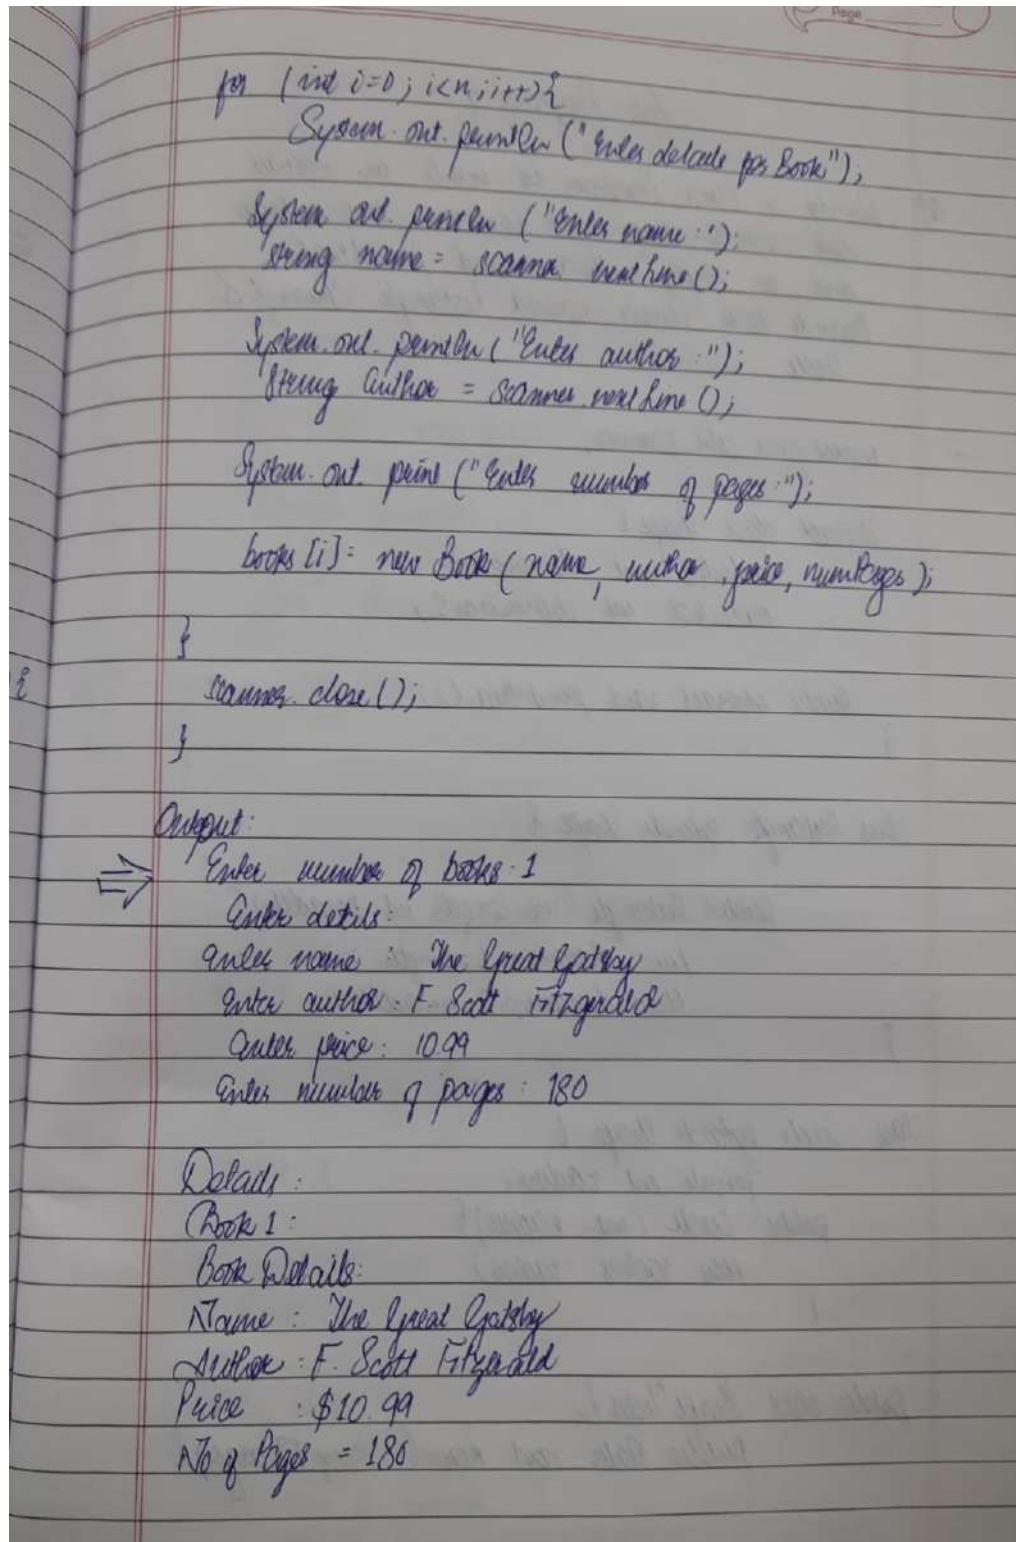 Page
for (int i=0; i<n; i++){
System.out.println ("Enter details for Book");
System out. println ("Enter name:');
String name = scanner nextLine();
System.out.println ("Enter author:");
String author = scanner.nextLine();
System.out.print ("Enter number of pages:");
books [i] = new Book (name, author, price, numPages);
}
{
scanner.close();
}
Output:
⇒ Enter number of books: 1
Enter detils:
Enter name : The Great Gatsby
Enter author: F. Scott Fitzgerald
Enter price: 10.99
Enter number of pages: 180
Details:
Book 1:
Book Details:
Name : The Great Gatsby
Author : F. Scott Fitzgerald
Price : $10.99
No of Pages = 180